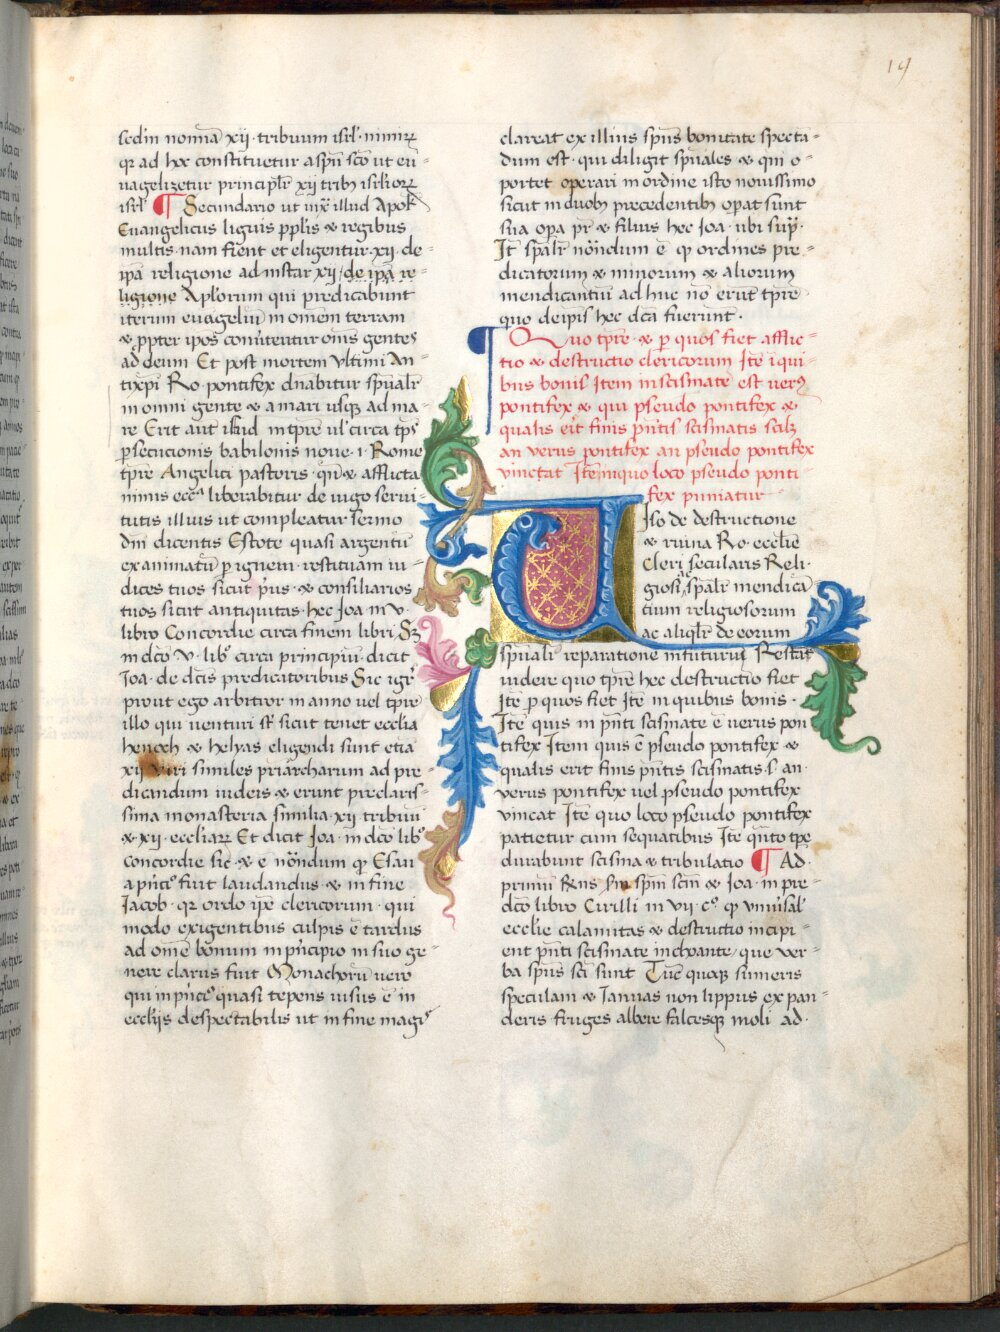 19
sedm nomīa xij · tribuum isrl' · nimirꝝ
qꝛ ad hec constituetur a spū scō ut eu
uagelizetur principlr xij tribꝫ isrlioꝝ
isrl' ¶ Secundario ut iux̄ illud Apok̄
Euangelicus liguis pplis & regibus
multis · nam fient et eligentur · xij · de
ipā religione ad instar xij · de ipā re
ligione Aplorum qui predicabunt
iterum euāgeliū in omem terram
& ppter ipos conūtentur oms gentes
ad deum Et post mortem Ultimi An
tixpi Ro · pontifex dnabitur spūalr
in omni gente & a mari usqꝫ ad ma
re Erit aut istud in tpre ul' circa tps
psecucionis babilonis noue · i · Rome
tpre Angelici pastoris · qn̄ & afflicta
nimis eccᵃ liberabitur de iugo serui
tutis illius ut compleatur sermo
dm̄ dicentis Estote quasi argentū
examinatū p ignem · restituam iu
dices tuos sicut pus · & consiliarios
tuos sicut antiquitas · hec Joa in v ·
libro Concordie circa finem libri Sꝫ
in dc̄o · v · libº circa principiū dicit
Joa · de dc̄is predicatoribus Sic igr̄
prout ego arbitror in anno uel tpre
illo qui uenturi st̄ sicut tenet ecclīa
henoch & helyas eligendi sunt etiā
xij viri similes priarcharum ad pre
dicandum iudeis & erunt preclaris
sima monasteria similia · xij tribuū
& · xij · eccliarꝝ Et dicit Joa · in dc̄o libº
concordie sic · & e nōndum qꝫ Esau
a pn̄cº fuit laudandus & in fine
Jacob · qꝛ ordo ipe clericorum · qui
modo exigentibus culpis ē tardus
ad omē bonum in pn̄cipio in suo ge
nere clarus fuit Monachorū uero
qui in pn̄cº quasi tepens uisus ē in
eccliis despectabilis ut in fine magis
clareat ex illius spūs bonitate specta
dum est · qui diligit spūales & qui o
portet operari in ordine isto nouissimo
sicut in duobꝫ precedentibꝫ opat sunt
sua opa pr̄ & filius hec Joa · ubi supͣ ·
Jt̄ spalr̄ nōndum ē qꝫ ordines pre
dicatorum & minorum & aliorum
mendicantiū ad huc nō erūt tpre
quo de ipis hec dc̄a fuerunt ·
¶ Quo tpre · & p quos fiet afflic
tio & destructio clericorum Jtē i qui
bus bonis Item in scismate est verꝰ
pontifex & qui pseudo pontifex &
qualis erit finis pn̄tis scismatis scilꝫ
an verus pontifex an pseudo pontifex
vincat Jtē in quo loco pseudo ponti
fex puniatur
Uiso de destructione
& ruina Ro · ecclie
Cleri secularis Reli
giosi spalr̄ mendicā
tium religiosorum
ac aliqlr de eorum
spūali reparatione in futurū Restat
uidere quo tpre hec destructio fiet
Jtē p quos fiet Jtē in quibus bonis ·
Jtē quis in pn̄ti scismate ē verus pon
tifex Jtem quis ē pseudo pontifex &
qualis erit finis pn̄tis scismatis s̄ an
verus pontifex uel pseudo pontifex
vincat Jtē quo loco pseudo pontifex
patietur cum sequatibus Jtē qn̄to tpe
durabunt scisma & tribulatio ¶ Ad
primū Rens scm̄ & Joa · in pre
dc̄o libro Cirilli in vij · cº · qꝫ vniūsal'
ecclie calamitas & destructio incipi
ent pn̄ti scismate inchoante, que ver
ba spūs sci sunt Tūc quaqꝫ sumeris
speculam & Januas non lippus expan
deris fruges albere falcesqꝫ moli ad